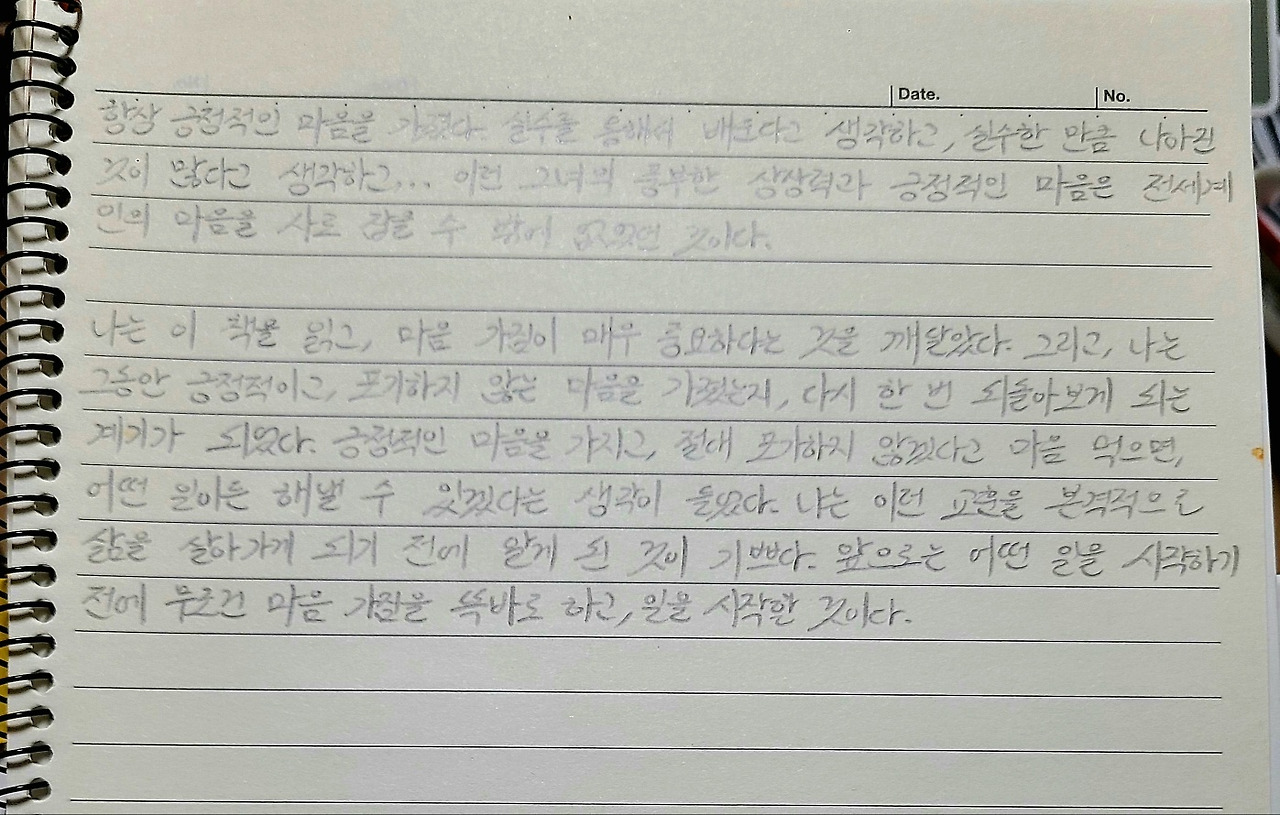 Date.
No.
항상 긍정적인 마음을 가졌다. 실수를 통해서 배운다고 생각하고, 실수한 만큼 나아진
것이 많다고 생각하고... 이런 그녀의 풍부한 상상력과 긍정적인 마음은 전세계
인의 마음을 사로 잡을 수 밖에 없었던 것이다.
나는 이 책을 읽고, 마음 가짐이 매우 중요하다는 것을 깨달았다. 그리고, 나는
그동안 긍정적이고, 포기하지 않는 마음을 가졌는지, 다시 한 번 되돌아보게 되는
계기가 되었다. 긍정적인 마음을 가지고, 절대 포기하지 않겠다고 마음 먹으면,
어떤 일이든 해낼 수 있겠다는 생각이 들었다. 나는 이런 교훈을 본격적으로
삶을 살아가게 되기 전에 알게 된 것이 기쁘다. 앞으로는 어떤 일을 시작하기
전에 무조건 마음 가짐을 똑바로 하고, 일을 시작할 것이다.